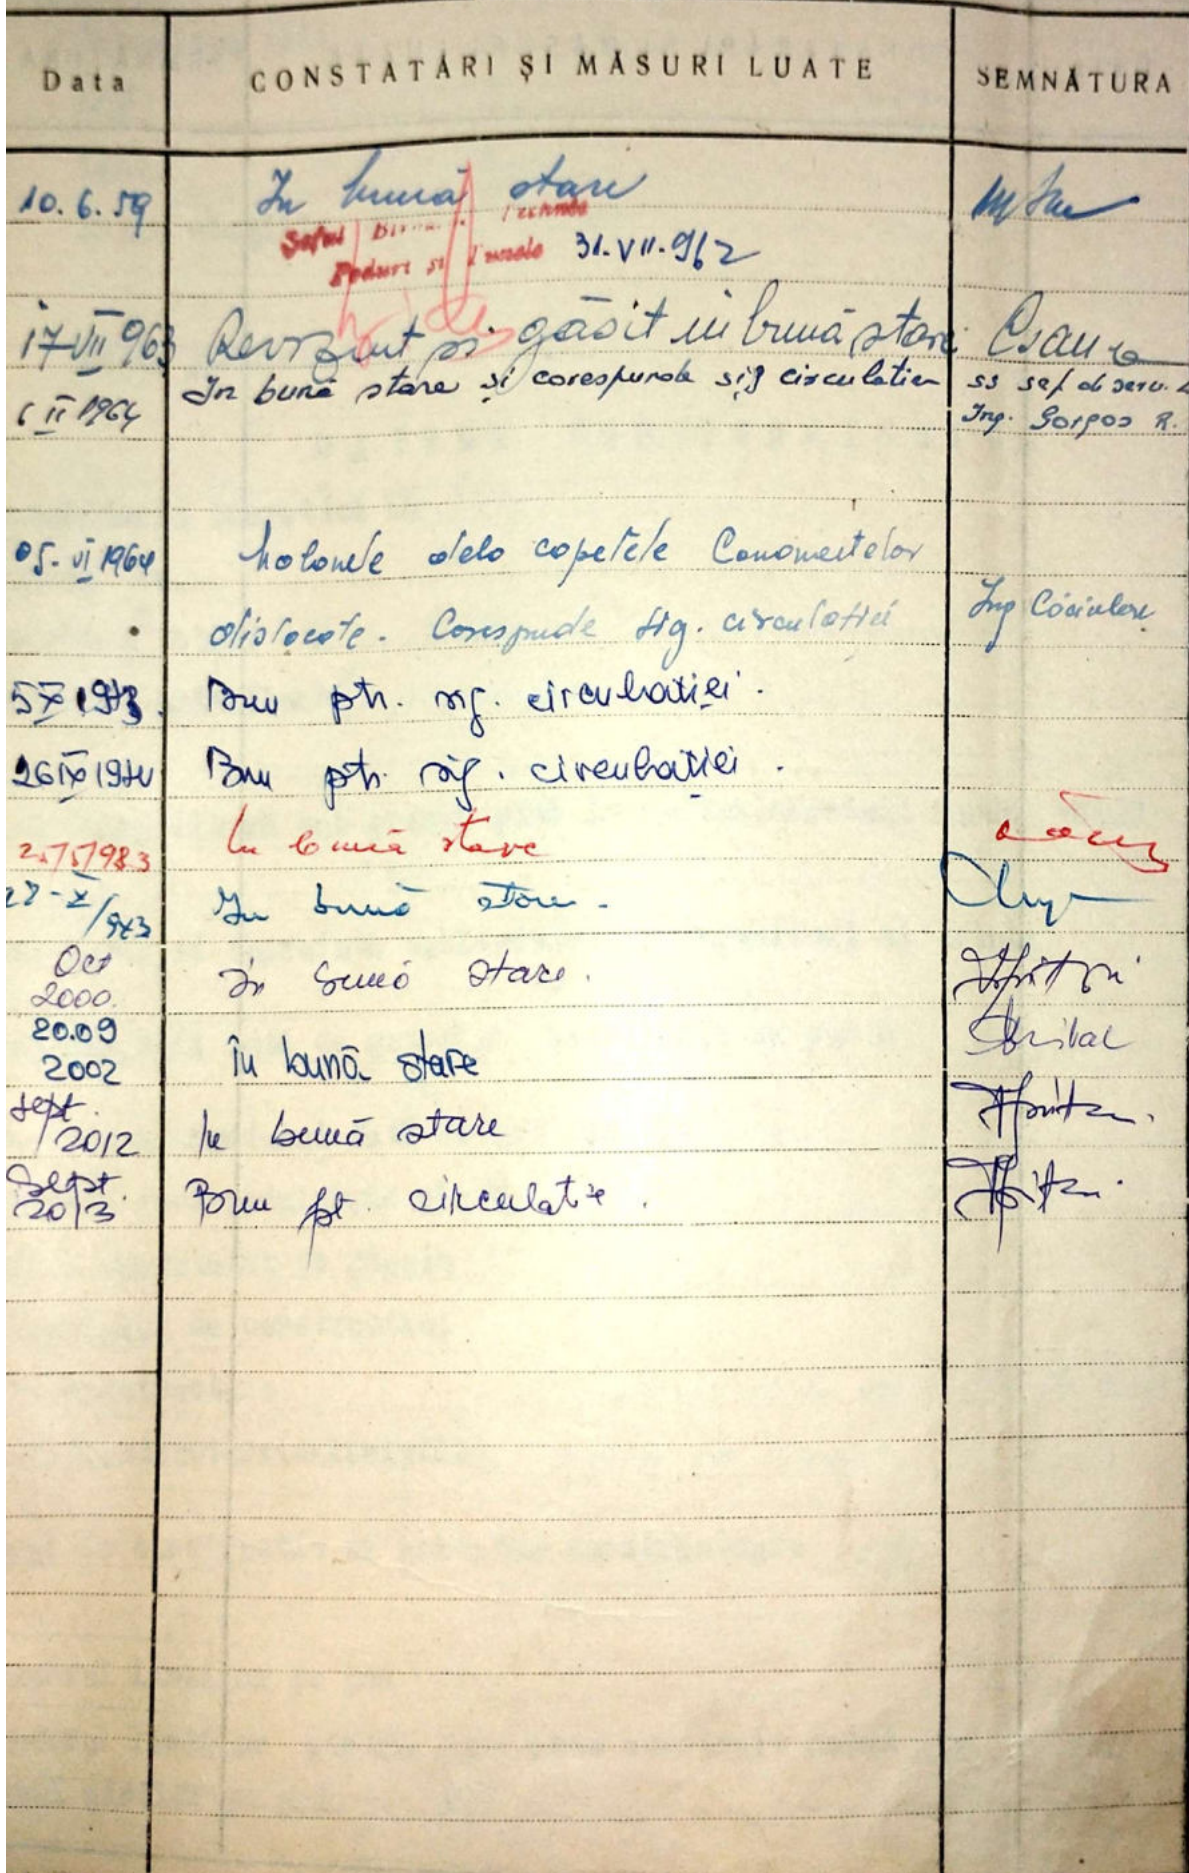 Data CONSTATĂRI ȘI MĂSURI LUATE SEMNĂTURA
10.6.59 In bună stare
Șeful Tehnic
Poduri și Tunele 31.VII.962
17 VII 963 Revizuit și găsit în bună stare
6 II 1964 In bună stare și corespunde sig circulatiei ss șef de serv.
Ing. Gorgos R.
05-VI 1964 dela capetele
dislocate. Corespunde sig. circulației Ing
5 X 1973. Bun ptr. sig. circulației.
26 IX 1974 Bun ptr. sig. circulației.
25/5/983 In bună stare
In bună stare.
Oct In bună stare.
2000.
20.09
2002 În bună stare
Sept.
/2012 In bună stare
Sept.
2013 Bun pt. circulatie.